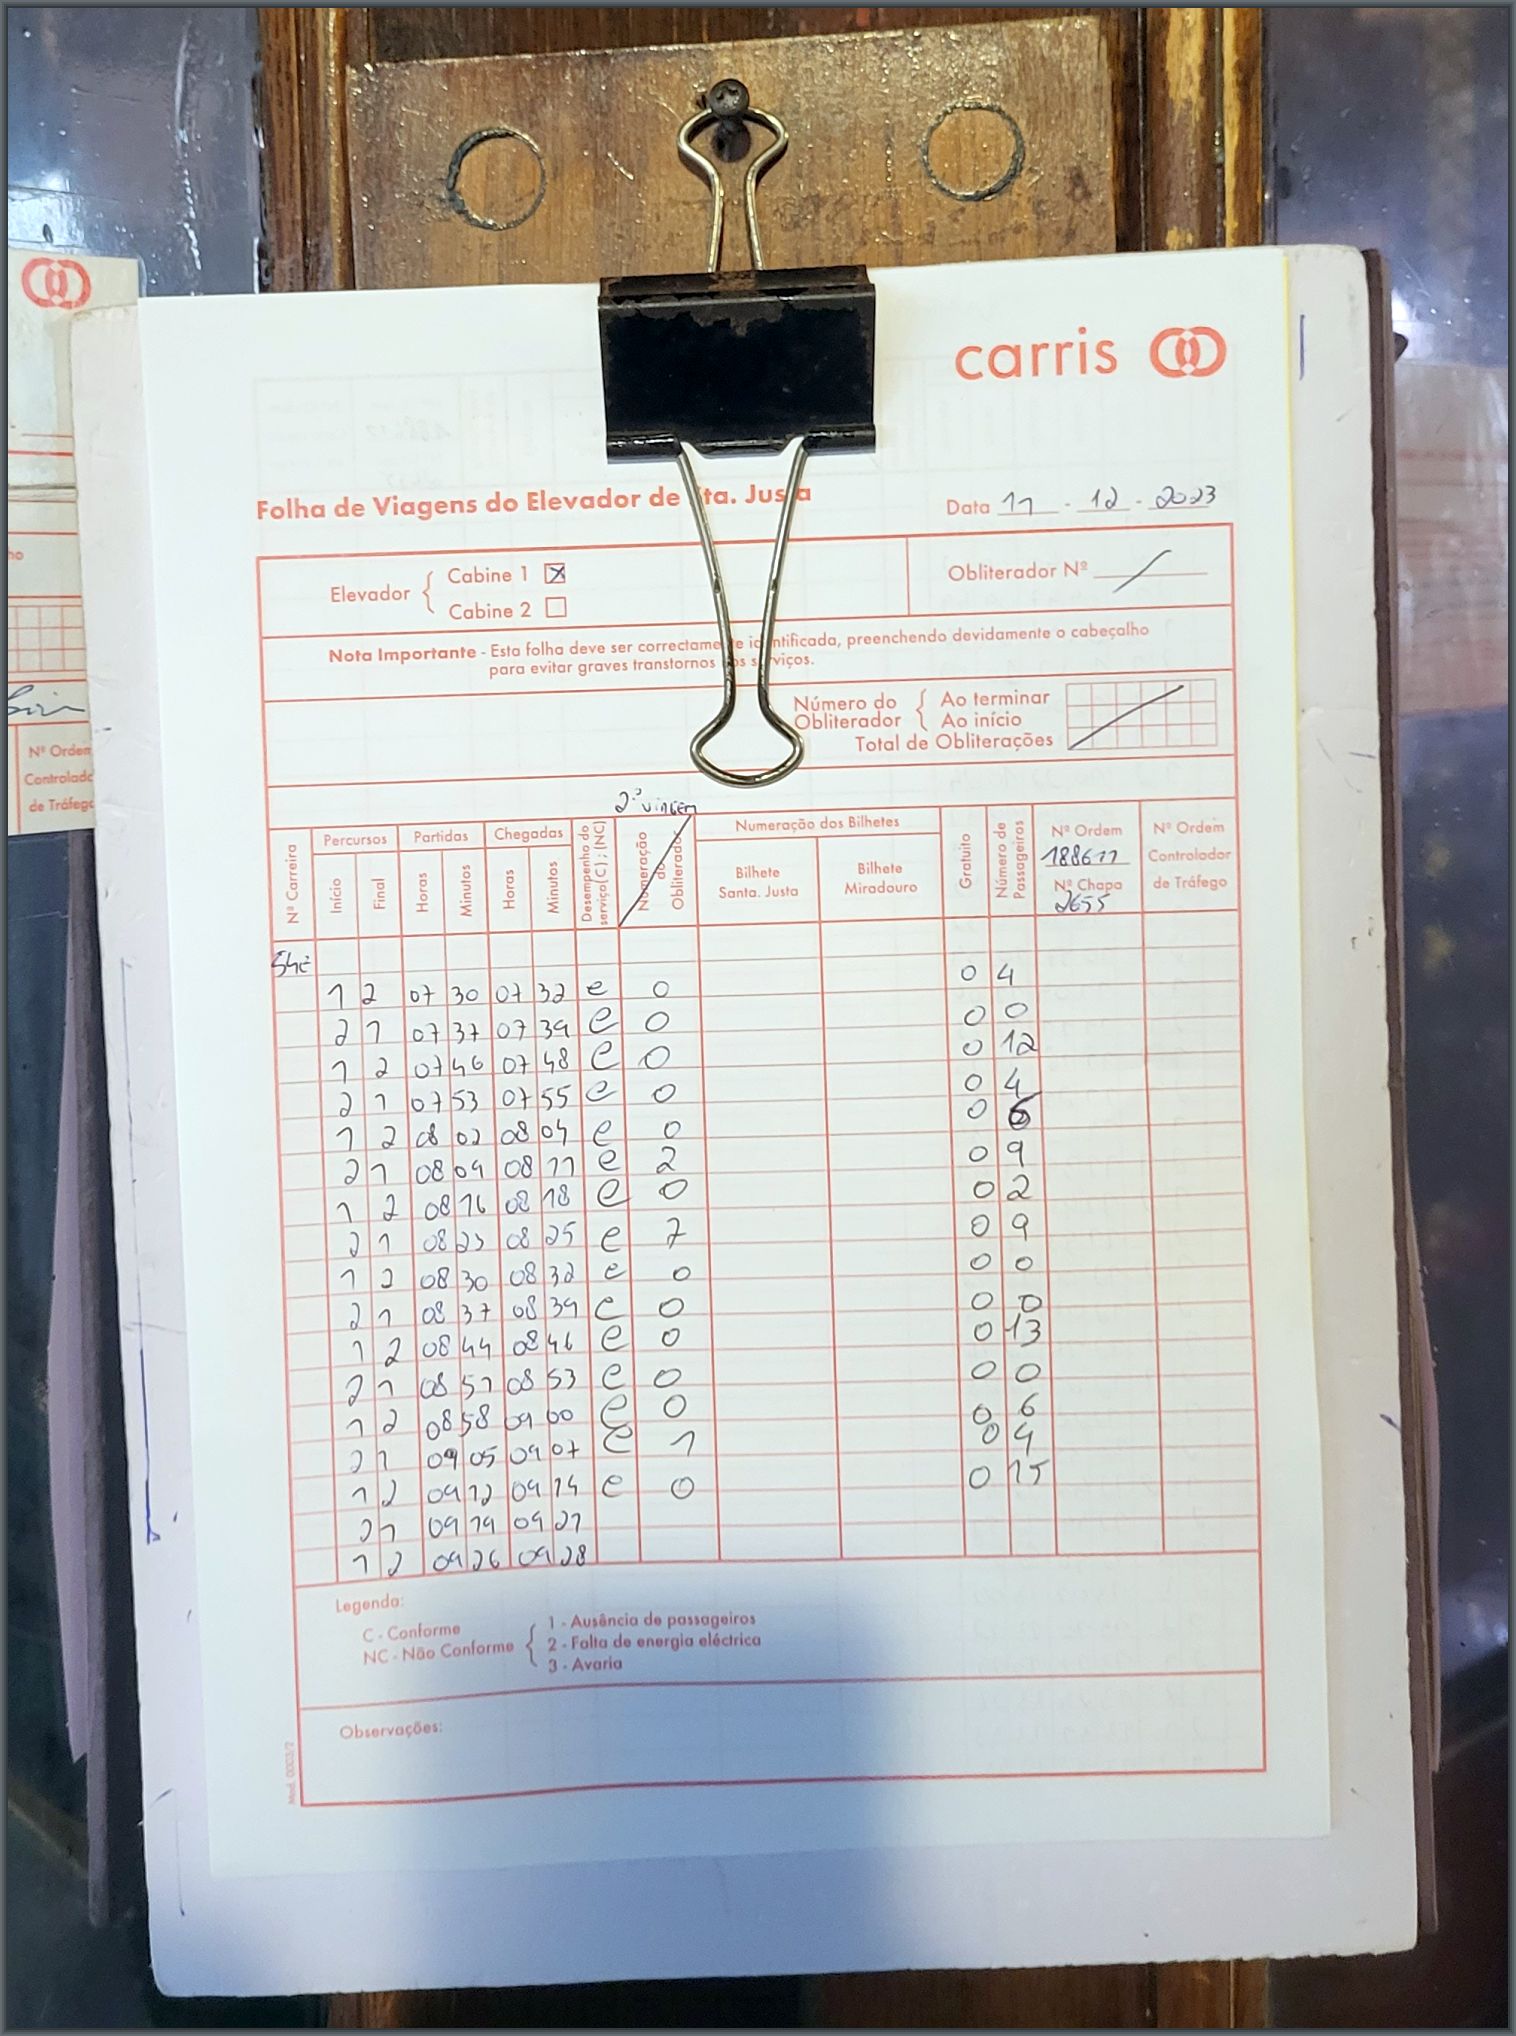 carris
Folha de Viagens do Elevador de Sta. Justa
Data 11 - 12 - 2023
Elevador { Cabine 1 [X]
Cabine 2 [ ]
Obliterador Nº /
Nota Importante - Esta folha deve ser correctamente identificada, preenchendo devidamente o cabeçalho
para evitar graves transtornos aos serviços.
Número do Obliterador { Ao terminar
Ao início
Total de Obliterações
2ª VIAGEM
Nº Carreira
Percursos
Início
Final
Partidas
Horas
Minutos
Chegadas
Horas
Minutos
Desempenho do serviço (C) ; (NC)
Numeração do Obliterador
Numeração dos Bilhetes
Bilhete Santa. Justa
Bilhete Miradouro
Gratuito
Número de Passageiros
Nº Ordem
188611
Nº Chapa
2655
Nº Ordem
Controlador
de Tráfego
54E
1 2 07 30 07 32 e 0 0 4
2 1 07 37 07 39 e 0 0 0
1 2 07 46 07 48 e 0 0 12
2 1 07 53 07 55 e 0 0 4
1 2 08 02 08 04 e 0 0 6
2 1 08 09 08 11 e 2 0 9
1 2 08 16 08 18 e 0 0 2
2 1 08 23 08 25 e 7 0 9
1 2 08 30 08 32 e 0 0 0
2 1 08 37 08 39 e 0 0 0
1 2 08 44 08 46 e 0 0 13
2 1 08 51 08 53 e 0 0 0
1 2 08 58 09 00 e 0 0 6
2 1 09 05 09 07 e 1 0 4
1 2 09 12 09 14 e 0 0 15
2 1 09 19 09 21
1 2 09 26 09 28
Legenda:
C - Conforme
NC - Não Conforme { 1 - Ausência de passageiros
2 - Falta de energia eléctrica
3 - Avaria
Observações:
Mod. 0003/2
Nº Ordem
Controlado
de Tráfego